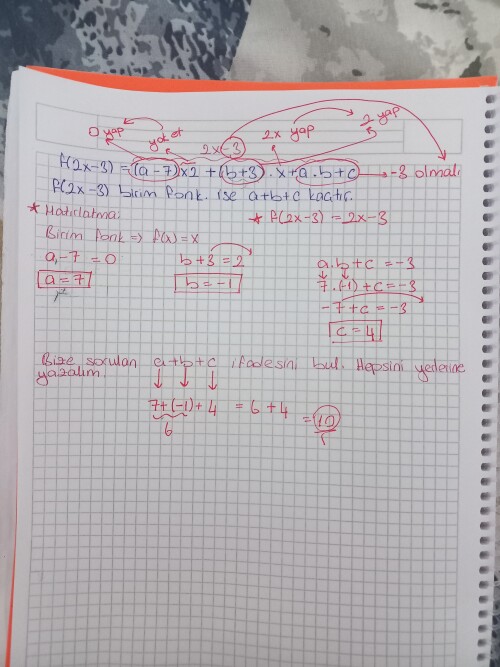 0 yap yok et 2x-3 2x yap 2 yap
f(2x-3) = (a-7)x2 + (b+3).x+a.b+c → -3 olmalı
f(2x-3) birim fonk. ise a+b+c kaçtır.
* Hatırlatma: * f(2x-3) = 2x-3
Birim fonk => f(x) = x
a-7 = 0 b+3 = 2 a.b+c = -3
a = 7 b = -1 7.(-1)+c = -3
-7+c = -3
c = 4
Bize sorulan a+b+c ifadesini bul. Hepsini yerlerine
yazalım.
7+(-1)+4 = 6+4 = 10
6